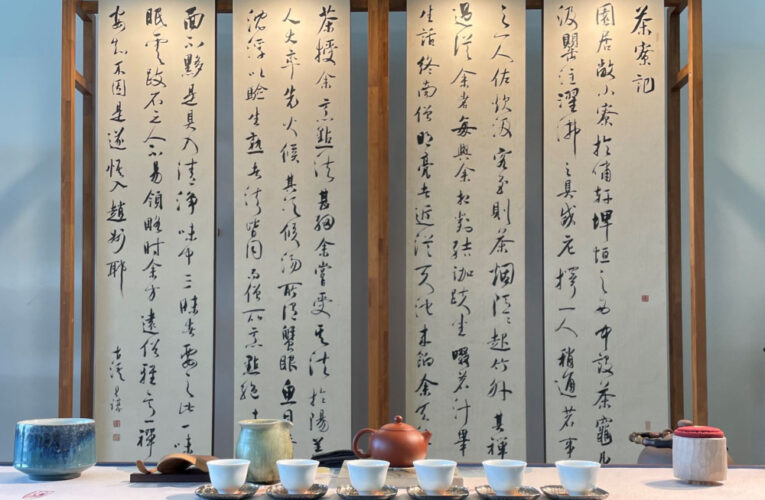 茶寮記
園居敞小寮於嘯軒埤垣之西中設茶竈凡
汲罌注濯拂之具咸庀擇一人稍通茗事
之一人佐炊汲客至則茶烟隱隱起竹外其禪
過從余者每與余相對結跏趺坐啜茗汁舉
生話終南僧明亮者近從天池來餉余天
茶授余烹點法甚細余嘗受其法於陽羨
人大率先火候其次候湯所謂蟹眼魚目
沈浮以驗生熟者法皆同而僧所烹點絕
面不黟是具入清淨味中三昧者要之此一味
眠雲跂石之人未易領略時余方遠俗雅意禪
安知不因是遂悟入趙州耶